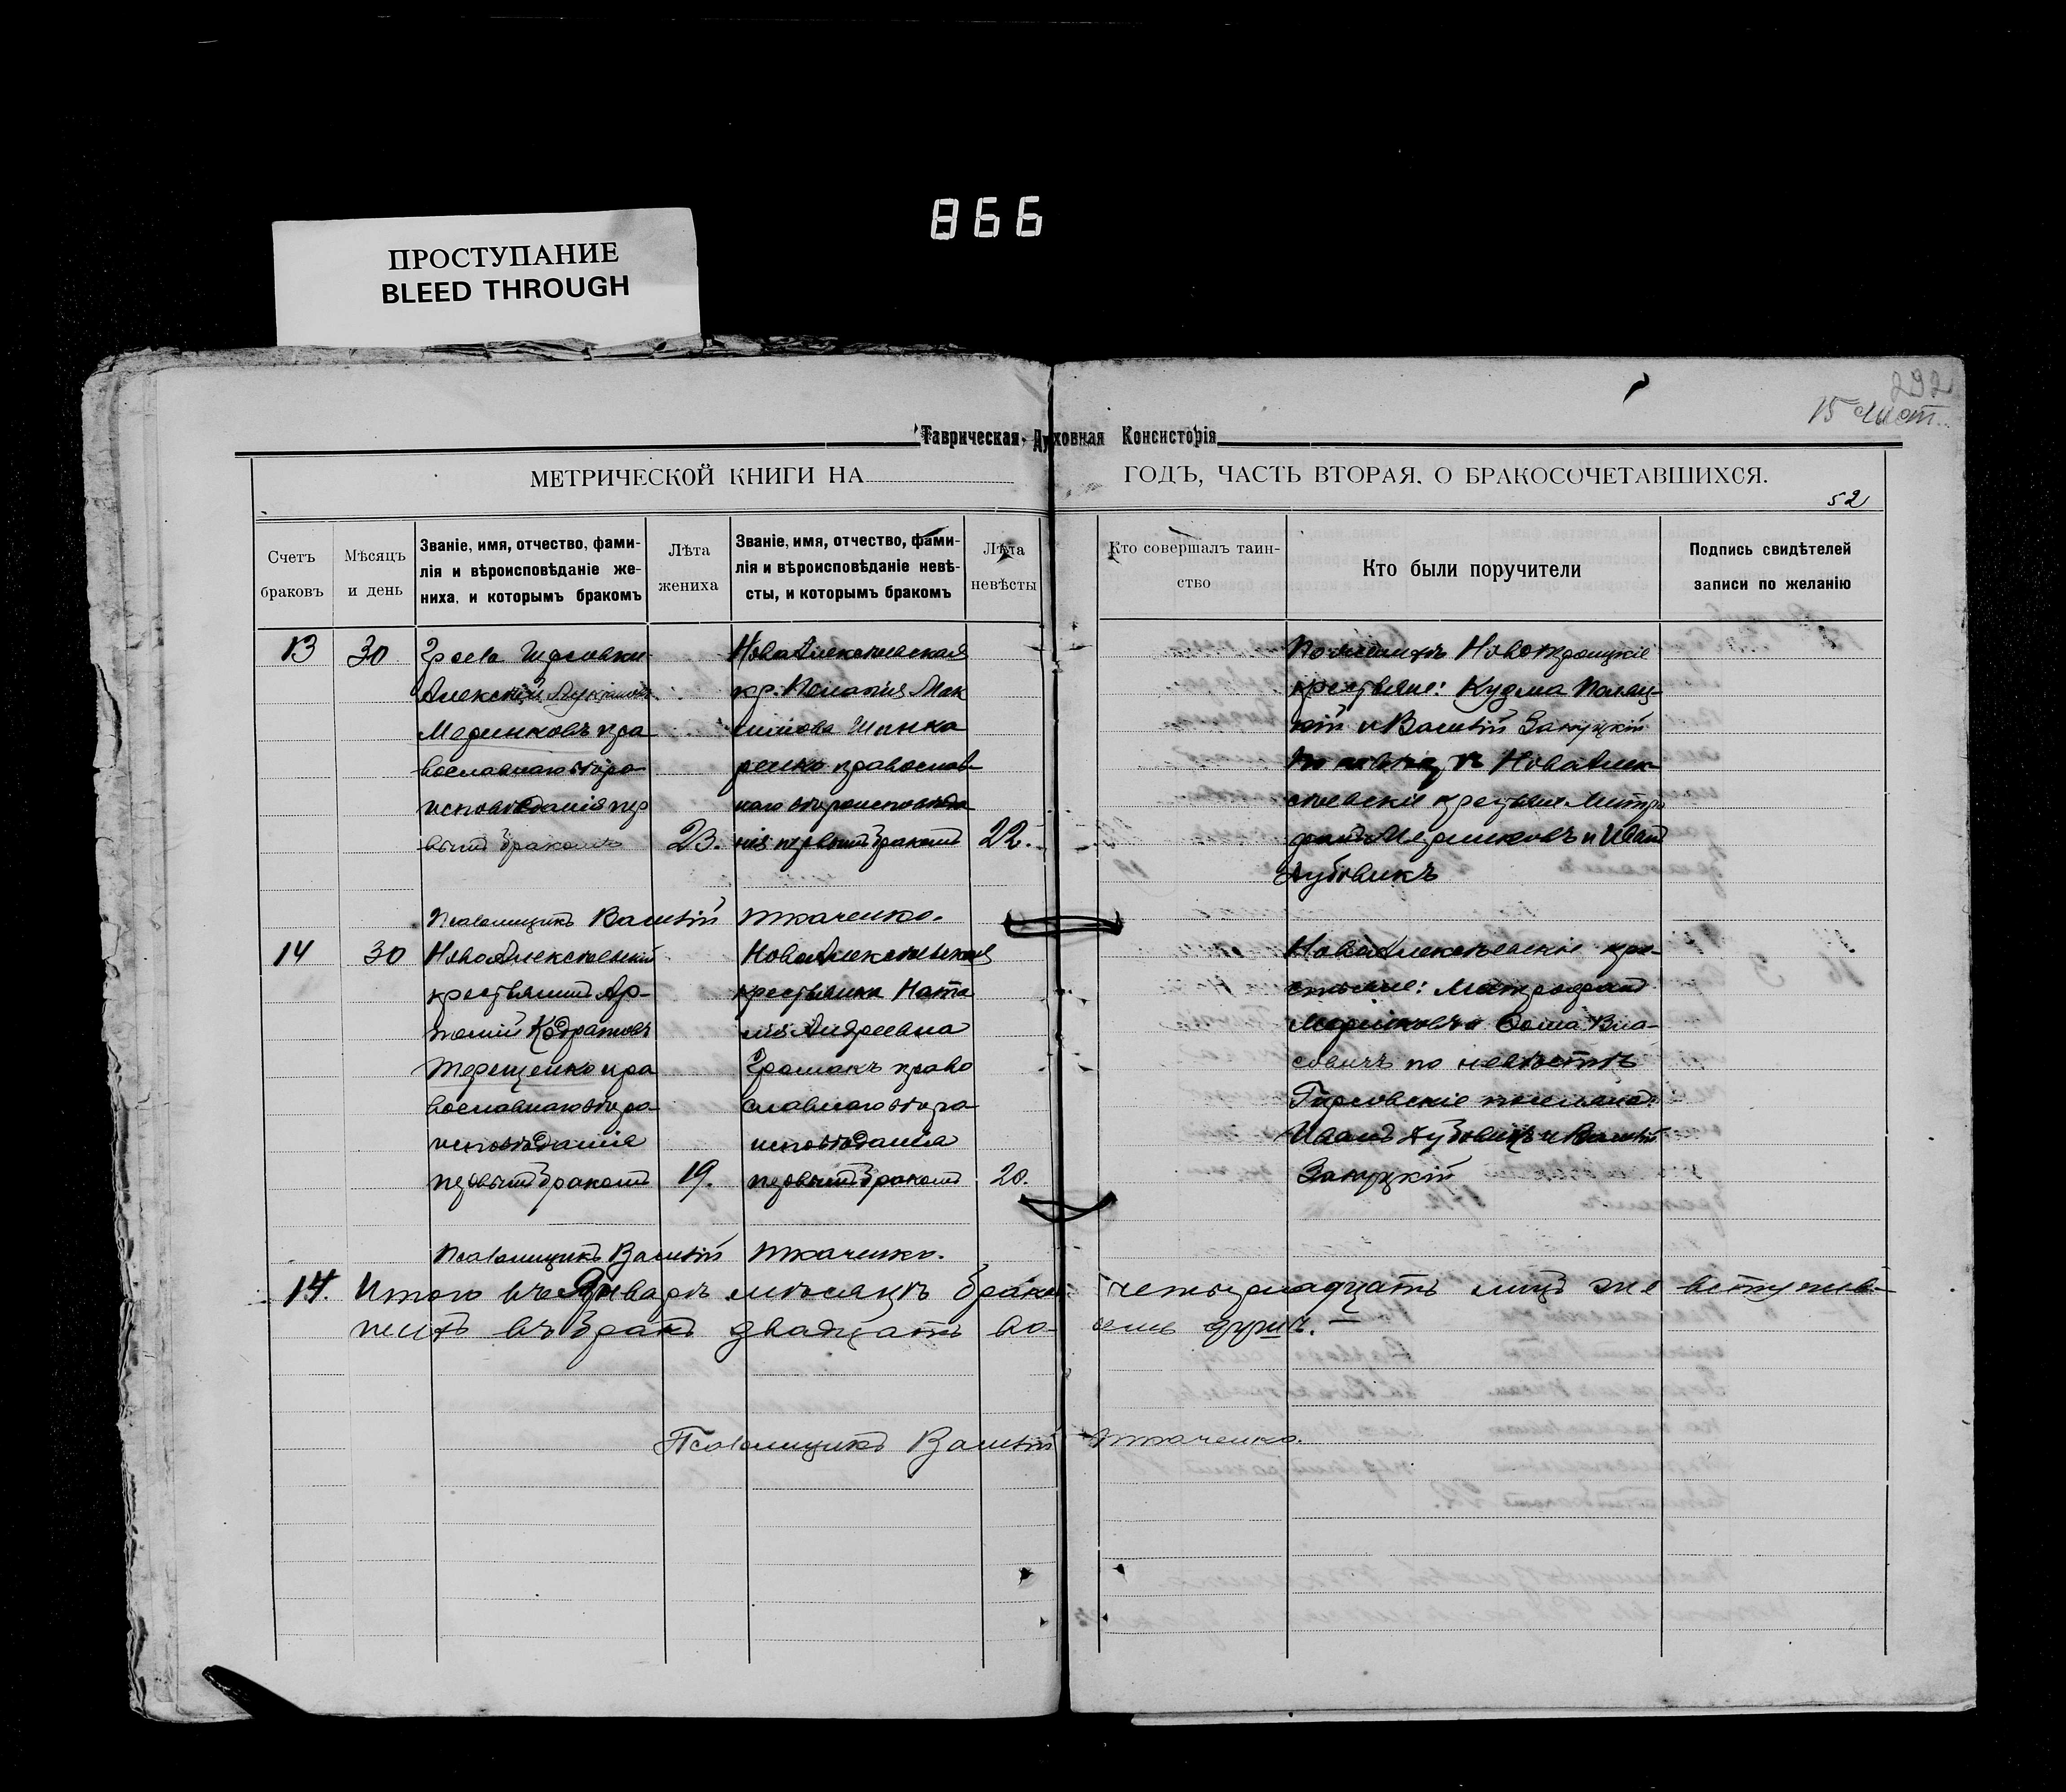 866
ПРОСТУПАНИЕ
BLEED THROUGH
292
15 лист.
Таврическая Духовная Консисторія
МЕТРИЧЕСКОЙ КНИГИ НА ГОДЪ, ЧАСТЬ ВТОРАЯ, О БРАКОСОЧЕТАВШИХСЯ.
52
Счетъ
браковъ
Мѣсяцъ
и день
Званіе, имя, отчество, фами-
лія и вѣроисповѣданіе же-
ниха, и которымъ бракомъ
Лѣта
жениха
Званіе, имя, отчество, фами-
лія и вѣроисповѣданіе невѣ-
сты, и которымъ бракомъ
Лѣта
невѣсты
Кто совершалъ таин-
ство
Кто были поручители
Подпись свидѣтелей
записи по желанію
13
30
Алексѣй
Мѣринковъ пра
вославнаго вѣро
исповѣданія пер
вымъ бракомъ
23.
НовоАлексѣевская
кр. Пелагія Мак
симова Шинка
ренко православ
наго вѣроисповѣда
нія первымъ бракомъ
22.
По женихѣ Новотроицкіе
крестьяне: Кузма
и Василій Закуцкій
НовоАлек
сѣевскіе крестьяне Митро
фанъ Мѣринковъ и Иванъ
Дубовикъ
Псаломщикъ Василій Ткаченко.
14
30
НовоАлексѣевскій
крестьянинъ Ар-
темій Кодратовъ
Терещенко пра
вославнаго вѣро-
исповѣданія
первымъ бракомъ
19.
НовоАлексѣевская
крестьянка Ната
лія Андреевна
право
славнаго вѣро
исповѣданія
первымъ бракомъ
20.
НовоАлексѣевскіе кре-
стьяне: Митрофанъ
Мѣринковъ и Фома Вла-
совичъ по невѣстѣ
Иванъ Дубовикъ и Василій
Закуцкій
Псаломщикъ Василій Ткаченко.
14. Итого въ Январѣ мѣсяцѣ брако четырнадцать лицъ же вступив-
шихъ въ бракъ двадцать во- семь душъ.
Псаломщикъ Василій Ткаченко.